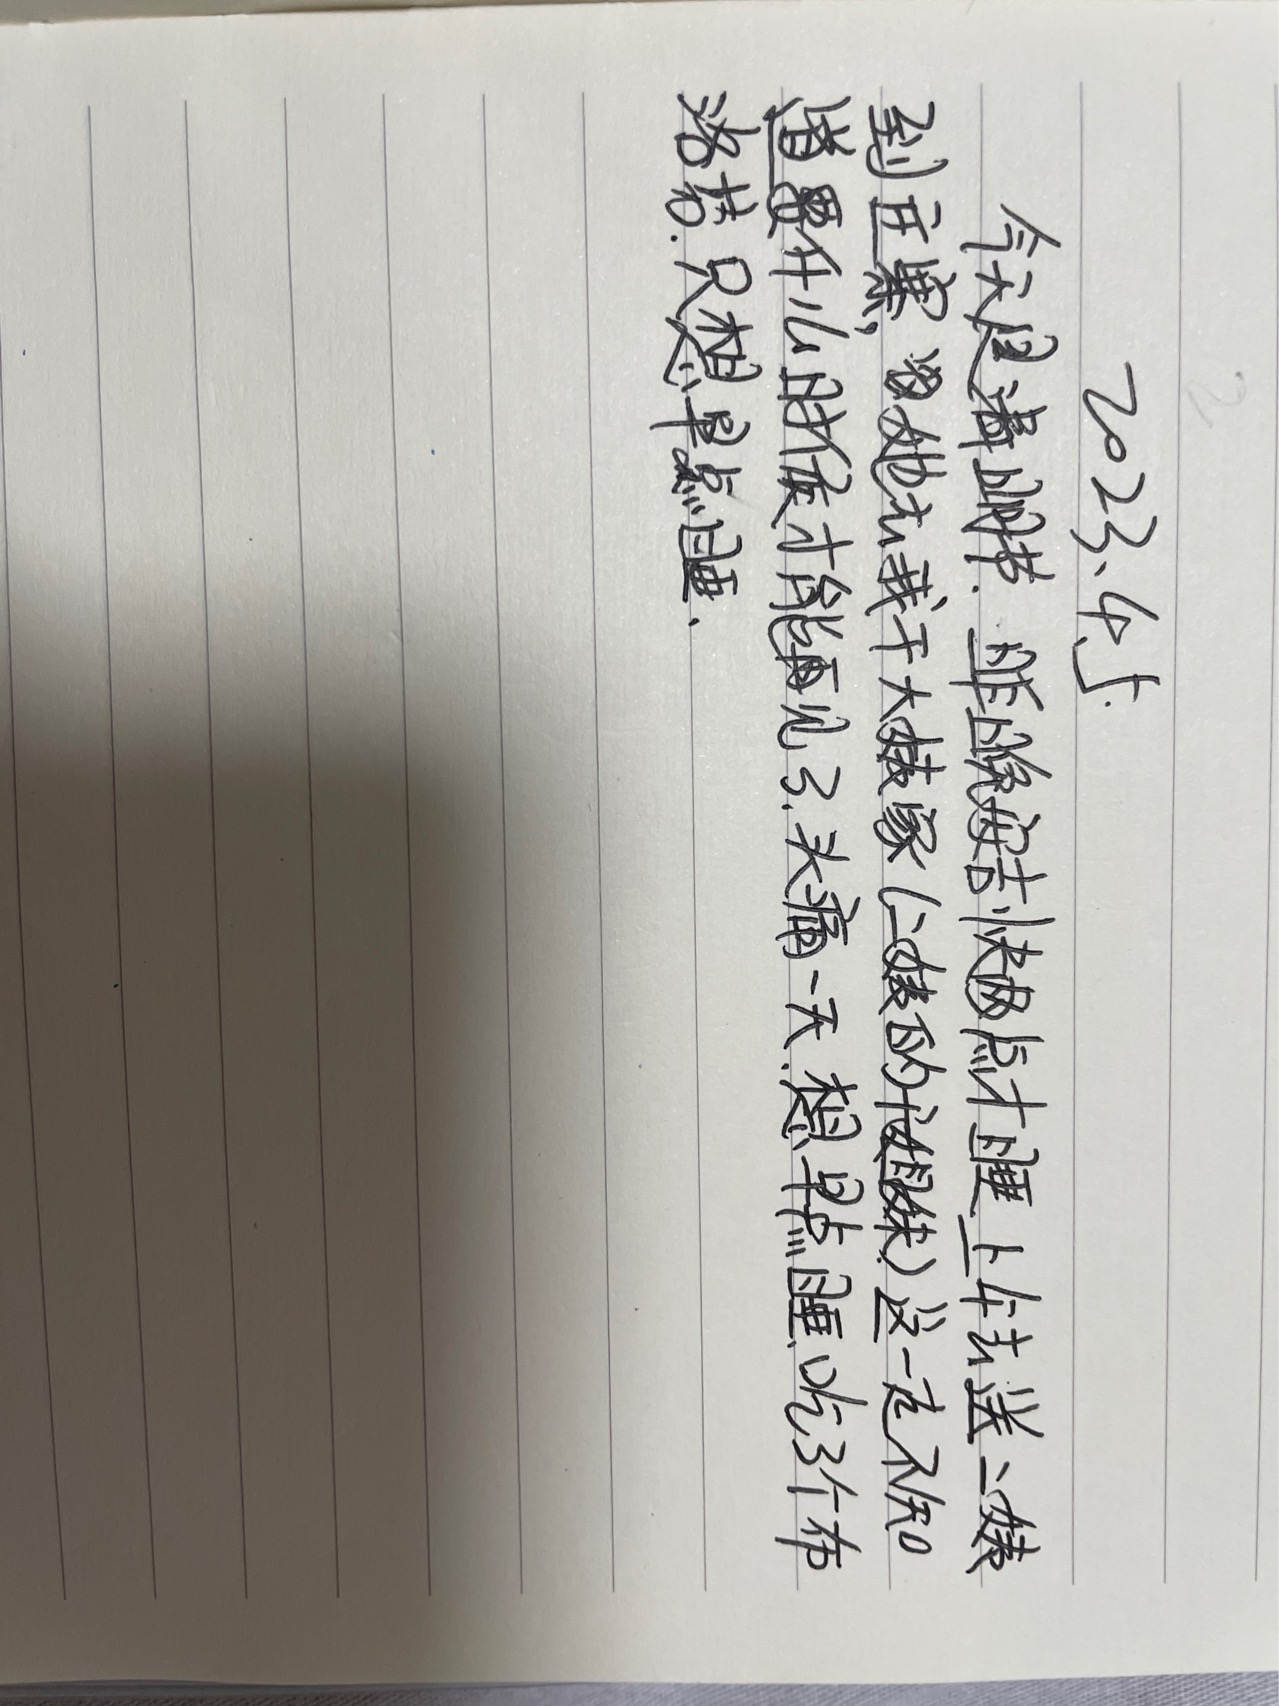 2023.4.5.
今天是清明节.昨晚安吉快两点才睡 上午去送二姨
到庄寨,没她去我干大姨家(二姨的被妹)这一走不知
道要什么时候才能再见了.头痛一天.想早点睡.吃了个布
洛芬.只想早点睡.